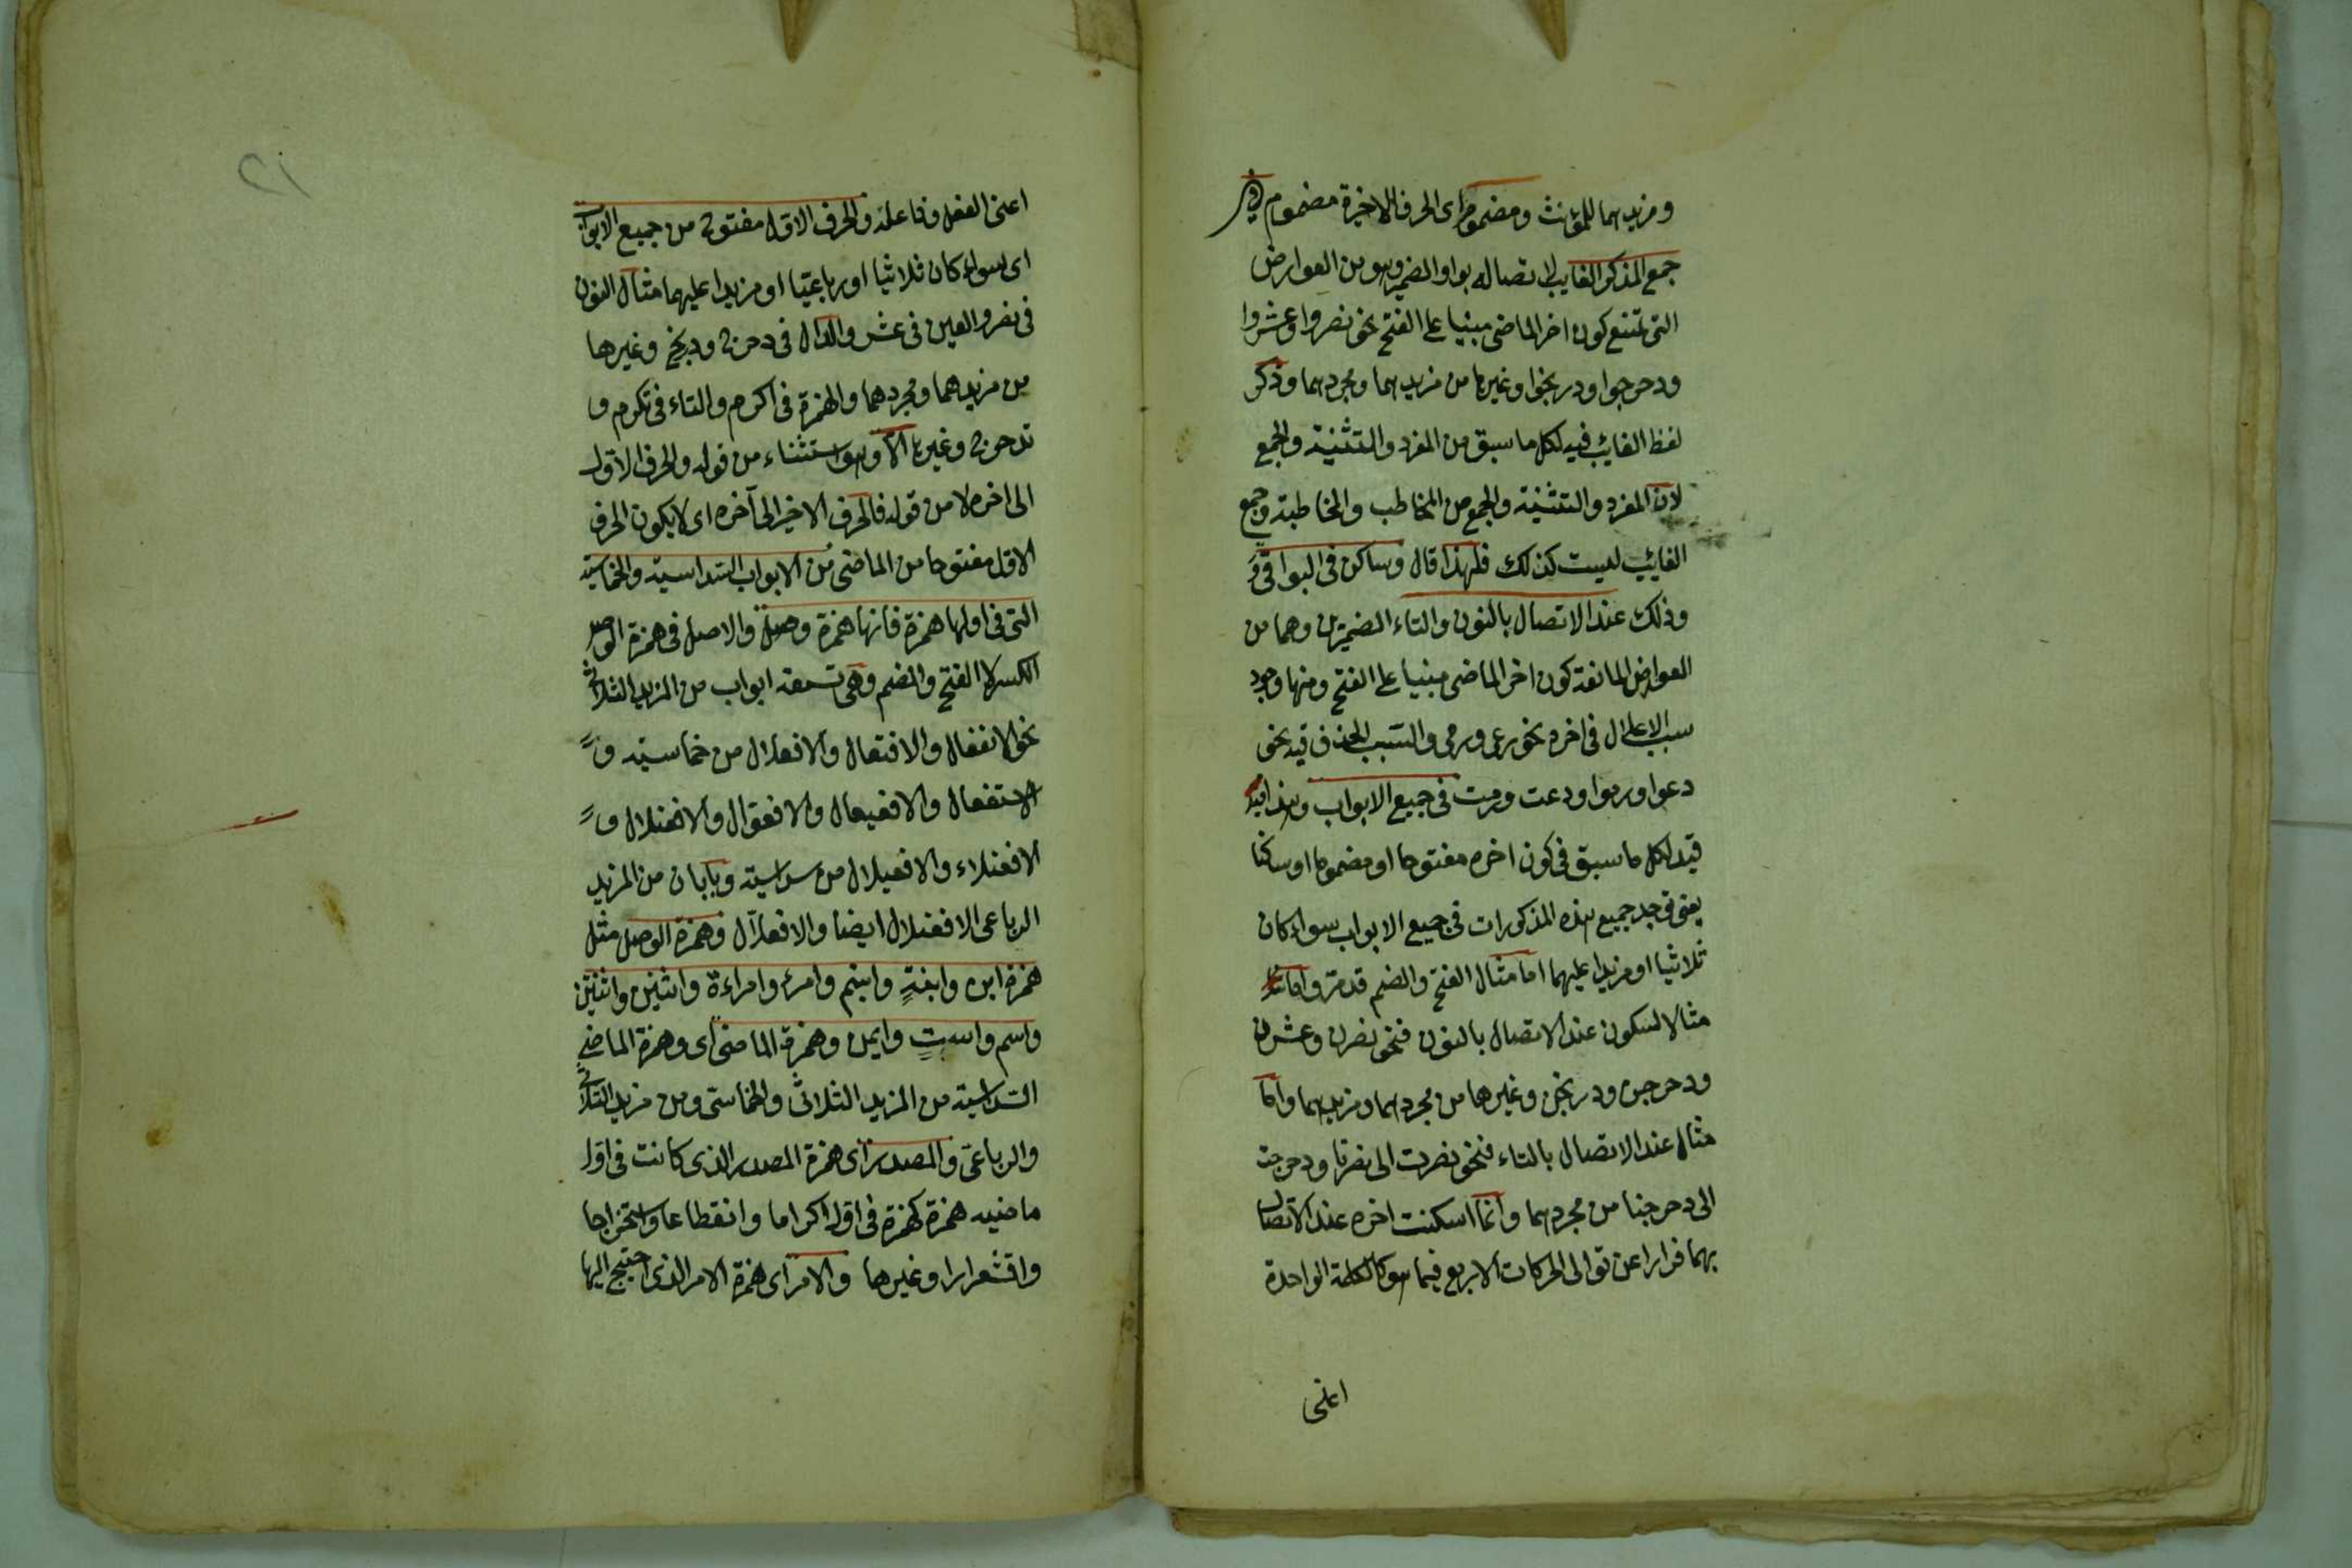 ومزيدهما للمؤنث ومضموم اى الحرف الاخيرة مضموم فى
جمع المذكر الغايب لاتصاله بواو الضمير وهو من العوارض
التى تمتنع كون اخر الماضى مبنيا على الفتح نحو نصروا وعشروا
ودحرجوا ودربخوا وغيرها من مزيدهما ومجردهما وذكر
لفظ الغايب قيد لكل ما سبق من المفرد والتثنية والجمع
لان المفرد والتثنية والجمع من المخاطب والمخاطبة وجمع
الغائب ليست كذلك فلهذا قال وساكن فى البواقى
وذلك عند الاتصال بالنون والتاء الضميرين وهما من
العوارض المانعة كون اخر الماضى مبنيا على الفتح ومنها وجود
سبب الاعلال فى اخره نحو رعى ورمى والسبب الحذف قيد نحو
دعوا ورموا ودعت ورمت فى جميع الابواب وهذا
قيد لكل ما سبق فى كون اخره مفتوحا او مضموما او ساكنا
يعنى توجد جميع هذه المذكورات فى جميع الابواب سواء كان
ثلاثيا او مزيدا عليهما اما مثال الفتح والضم قد مر واما
مثالا لسكون عند الاتصال بالنون فنحو نصرن وعشرن
ودحرجن ودربخن وغيرها من مجردهما ومزيدهما واما
مثال عند الاتصال بالتاء فنحو نصرت الى نصرنا ودحرجت
الى دحرجنا من مجردهما وانما اسكنت اخره عند الاتصال
بهما فرارا عن توالى الحركات الاربع فيما هو كالكلمة الواحدة
اعنى
١٢
اعنى الفعل وفاعله والحرف الاول مفتوح من جميع الابواب
اى سواء كان ثلاثيا او رباعيا او مزيدا عليهما مثال النون
فى نصر والعين فى عشر والدال فى دحرج ودربخ وغيرها
من مزيدهما ومجردهما والهمزة فى اكرم والتاء فى تكرم و
تدحرج وغيرها الا وهو استثناء من قوله والحرف الاول
الى اخره لا من قوله فالحرف الاخير الى آخره اى لا يكون الحرف
الاول مفتوحا من الماضى من الابواب السداسية والخماسية
التى فى اولها همزة فانها همزة وصل والاصل فى همزة الوصل
الكسر لا الفتح والضم وهى تسعة ابواب من المزيد الثلاثى
نحو الانفعال والافتعال والافعلال من خماسية و
الاستفعال والافعيعال والافعوال والافعنلال و
الافعنلاء والافعيلال من سداسية وبابان من المزيد
الرباعى الافعنلال ايضا والافعلال وهمزة الوصل مثل
همزة ابن وابنة وابنم وامرء وامراءة واثنين واثنتين
واسم واست وايمن وهمزة الماضى اى وهمزة الماضى
السداسية من المزيد الثلاثى والخماسى ومن مزيد الثلاثى
والرباعى والمصدر اى همزة المصدر الذى كانت فى اول
ماضيه همزة كهمزة فى اول اكراما وانقطاعا واستخراجا
واقشعرارا وغيرها والامر اى همزة الامر الذى احتيج اليها